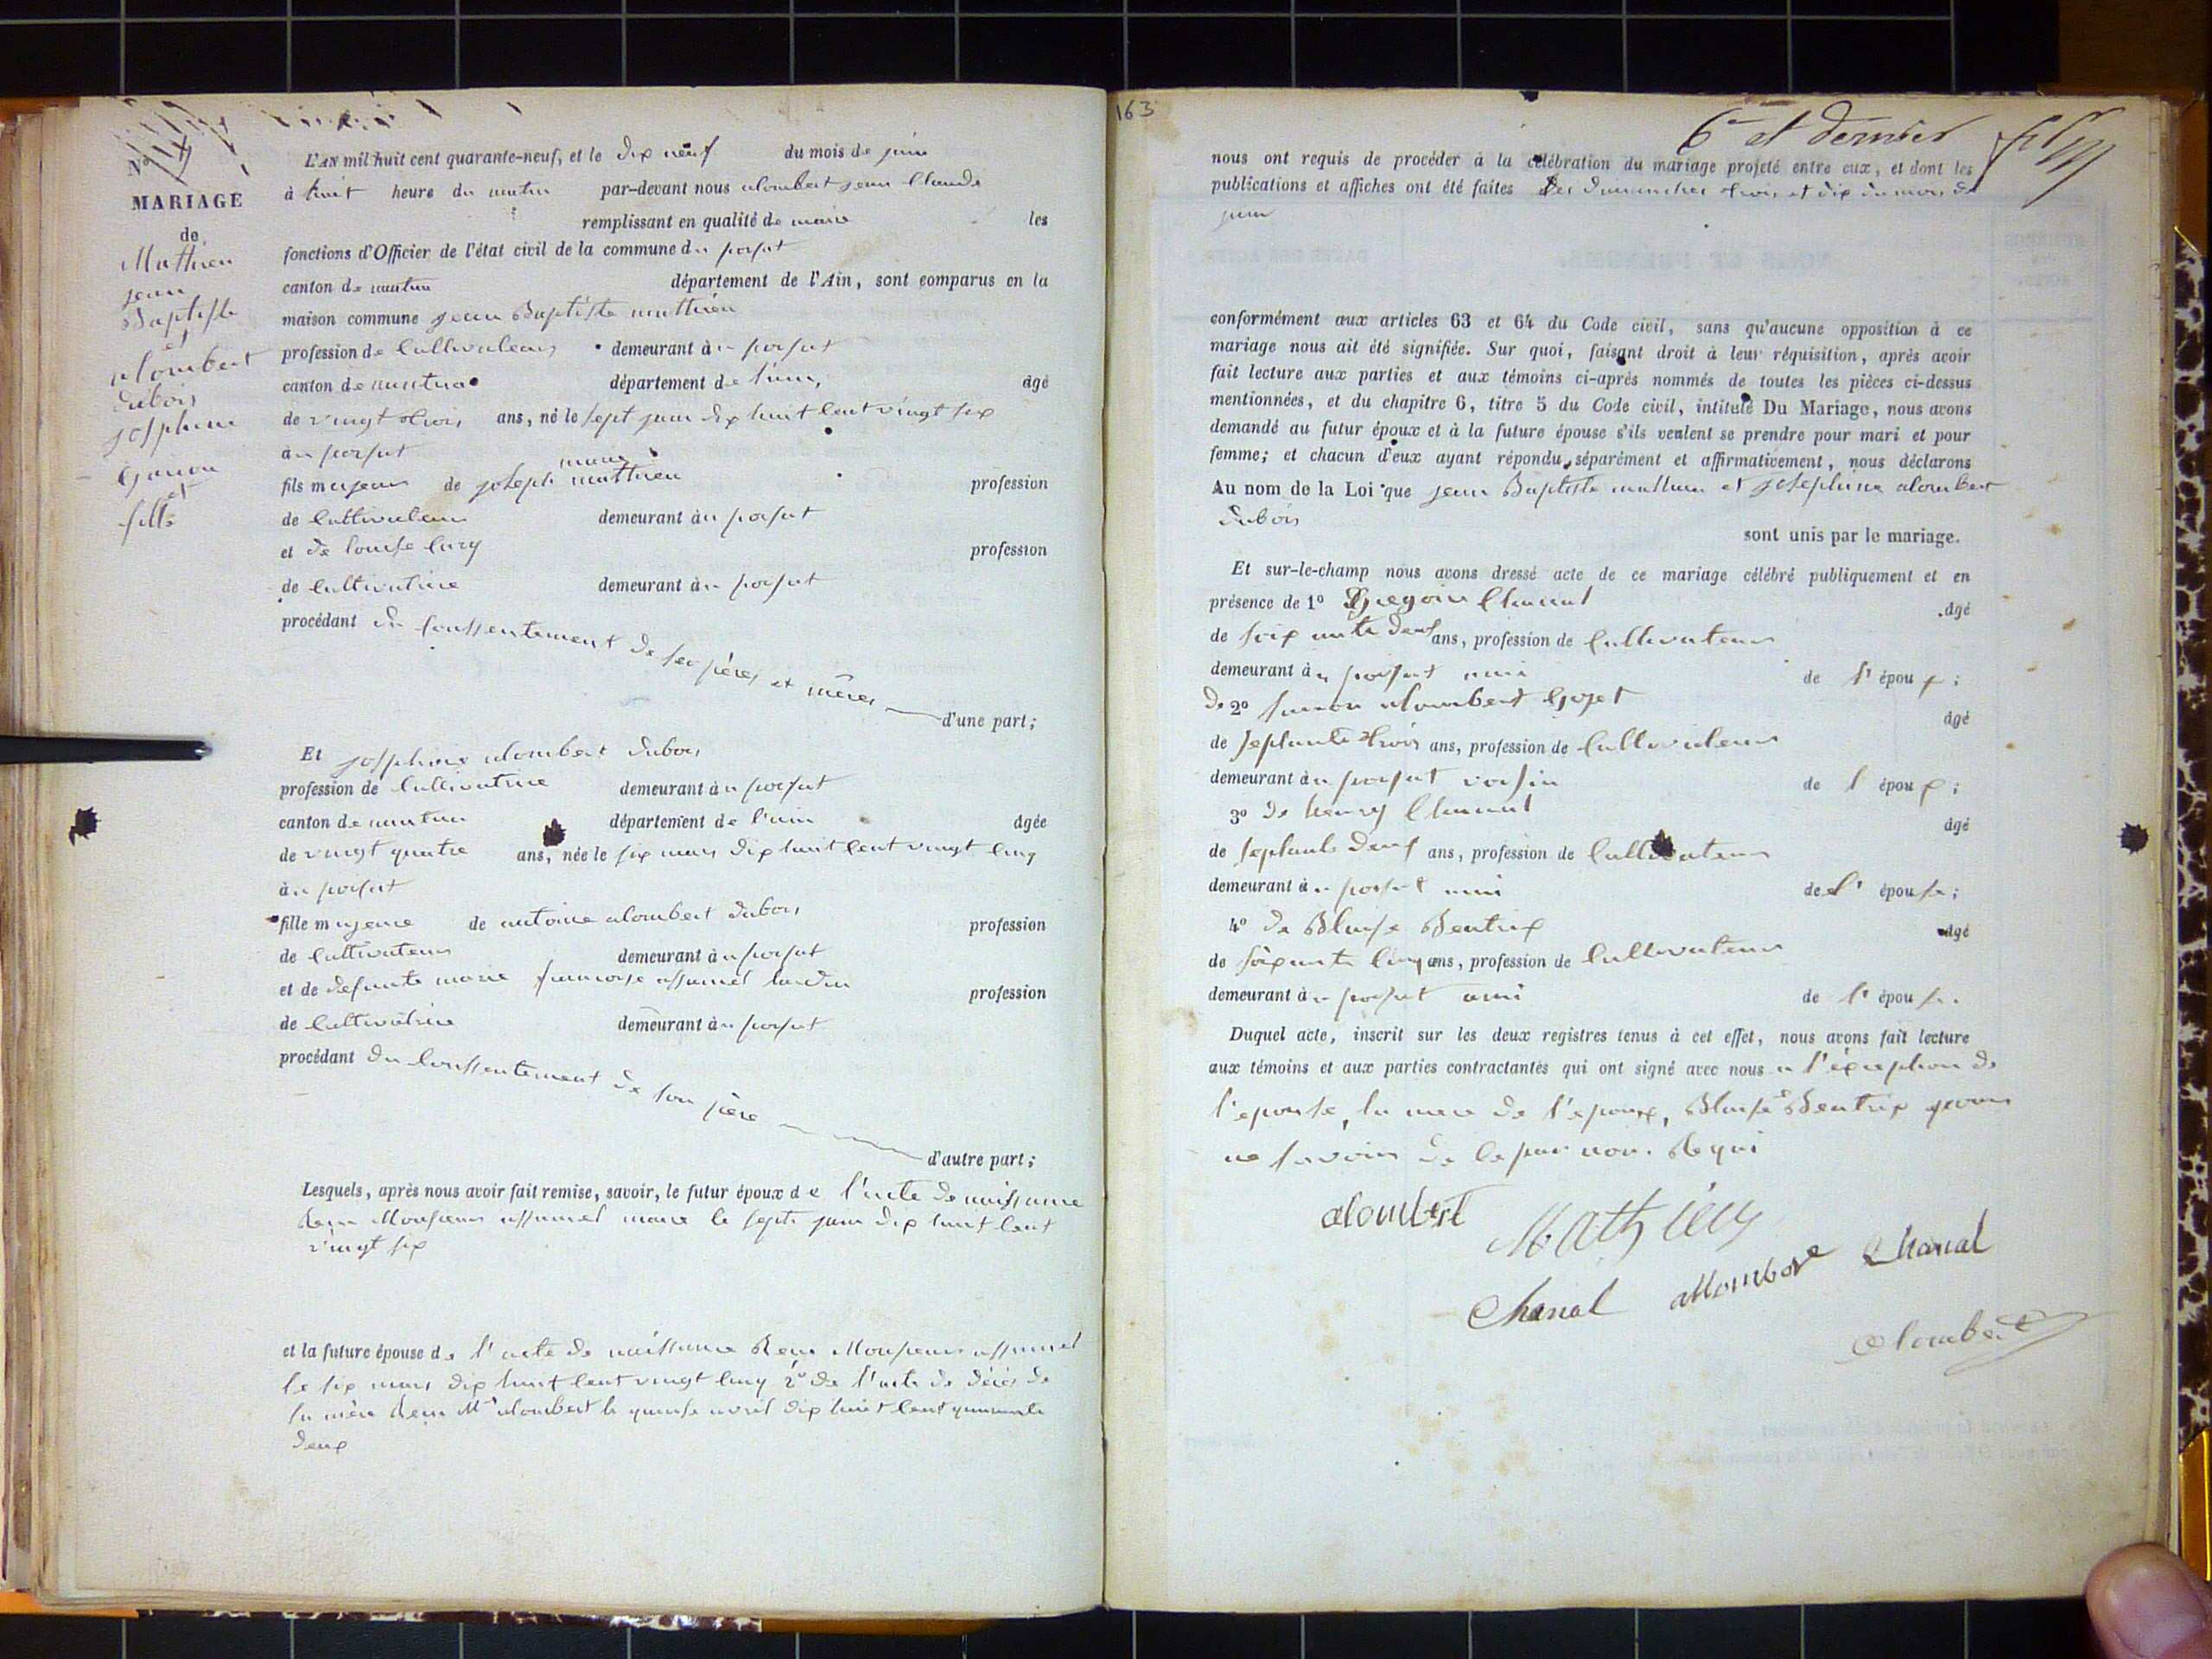 N° 14
MARIAGE
de
Matthieu
jean
Baptiste
et
alombert
dubois
josphine
Garçon
et
fille
L'AN mil huit cent quarante-neuf, et le dix neuf du mois de juin
à huit heure du matin par-devant nous alombert jean Claude
remplissant en qualité de maire les
fonctions d'Officier de l'état civil de la commune du poisat
canton de nantua département de l'Ain, sont comparus en la
maison commune jean Baptiste matthieu
profession de Cultivateur demeurant à u poisat
canton de nantua département de l'ain, âgé
de vingt trois ans, né le sept juin dix huit Cent vingt six
à u poisat
fils majeur de joseph marie matthieu profession
de Cultivateur demeurant à u poisat
et de louise Cury profession
de Cultivatrice demeurant à u poisat
procédant du Conssentement de ses pères et mères d'une part;
Et josphine alombert dubois
profession de Cultivatrice demeurant à u poisat
canton de nantua département de l'ain âgée
de vingt quatre ans, née le six mars dix huit Cent vingt Cinq
à u poisat
fille majeure de antoine alombert dubois profession
de Cultivateur demeurant à u poisat
et de défunte marie francoise assumel lurdin profession
de Cultivatrice demeurant à u poisat
procédant du Conssentement de son père d'autre part;
Lesquels, après nous avoir fait remise, savoir, le futur époux de l'acte de naissance
Reçu Monsieur assumel maire le sept juin dix huit Cent
vingt six
et la future épouse de l'acte de naissance Reçu Monsieur assumel
le six mars dix huit Cent vingt Cinq 2° de l'acte de décès de
sa mère Reçu Mr alombert le quinse avril dix huit Cent quarante
deux
163
6e et dernier
nous ont requis de procéder à la célébration du mariage projeté entre eux, et dont les
publications et affiches ont été faites Les dimanches trois et dix du mois de
juin
conformément aux articles 63 et 64 du Code civil, sans qu'aucune opposition à ce
mariage nous ait été signifiée. Sur quoi, faisant droit à leur réquisition, après avoir
fait lecture aux parties et aux témoins ci-après nommés de toutes les pièces ci-dessus
mentionnées, et du chapitre 6, titre 5 du Code civil, intitulé Du Mariage, nous avons
demandé au futur époux et à la future épouse s'ils veulent se prendre pour mari et pour
femme; et chacun d'eux ayant répondu séparément et affirmativement, nous déclarons
Au nom de la Loi que jean Baptiste matthieu et josephine alombert
dubois
sont unis par le mariage.
Et sur-le-champ nous avons dressé acte de ce mariage célébré publiquement et en
présence de 1° Gregoire Chanal âgé
de soixante deux ans, profession de Cultivateur
demeurant à u poisat ami de l' époux;
De 2° simon alombert Gojet âgé
de septante trois ans, profession de Cultivateur
demeurant à u poisat voisin de l époux;
3° De henry Chanal âgé
de septante deux ans, profession de Cultivateur
demeurant à u poisat ami de l' épouse;
4° de Blaise Beatrix âgé
de soixante Cinq ans, profession de Cultivateur
demeurant à u poisat ami de l' épouse.
Duquel acte, inscrit sur les deux registres tenus à cet effet, nous avons fait lecture
aux témoins et aux parties contractantes qui ont signé avec nous a l'exception de
l'epouse, la mere de l'epoux, Blaise Beatrix pour
ne savoir de Ce par nou. Requi
alombert
Mathieu
Chanal
allombert
Chanal
alombert